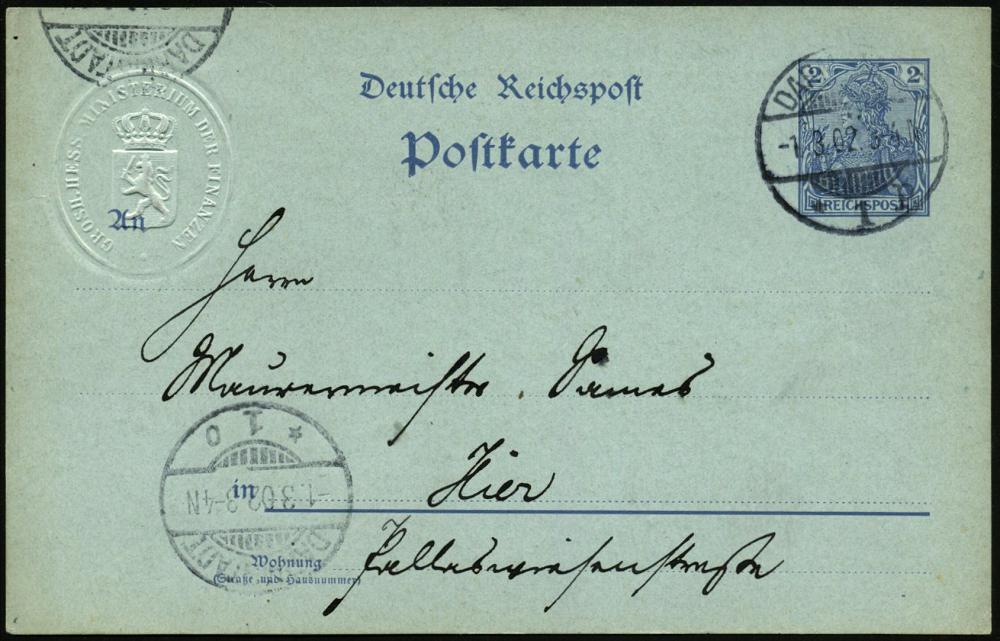 DARMSTADT
GROSH. HESS. MINISTERIUM DER FINANZEN
Deutsche Reichspost
Postkarte
2 2
REICHSPOST
DA
-1.3.02.
1
An
Herrn
Maurermeister Sames
in Hier
Wohnung
(Straße und Hausnummer)
Pallaswiesenstraße
* 1 0
-1.3.02.3-4N
DARMSTADT